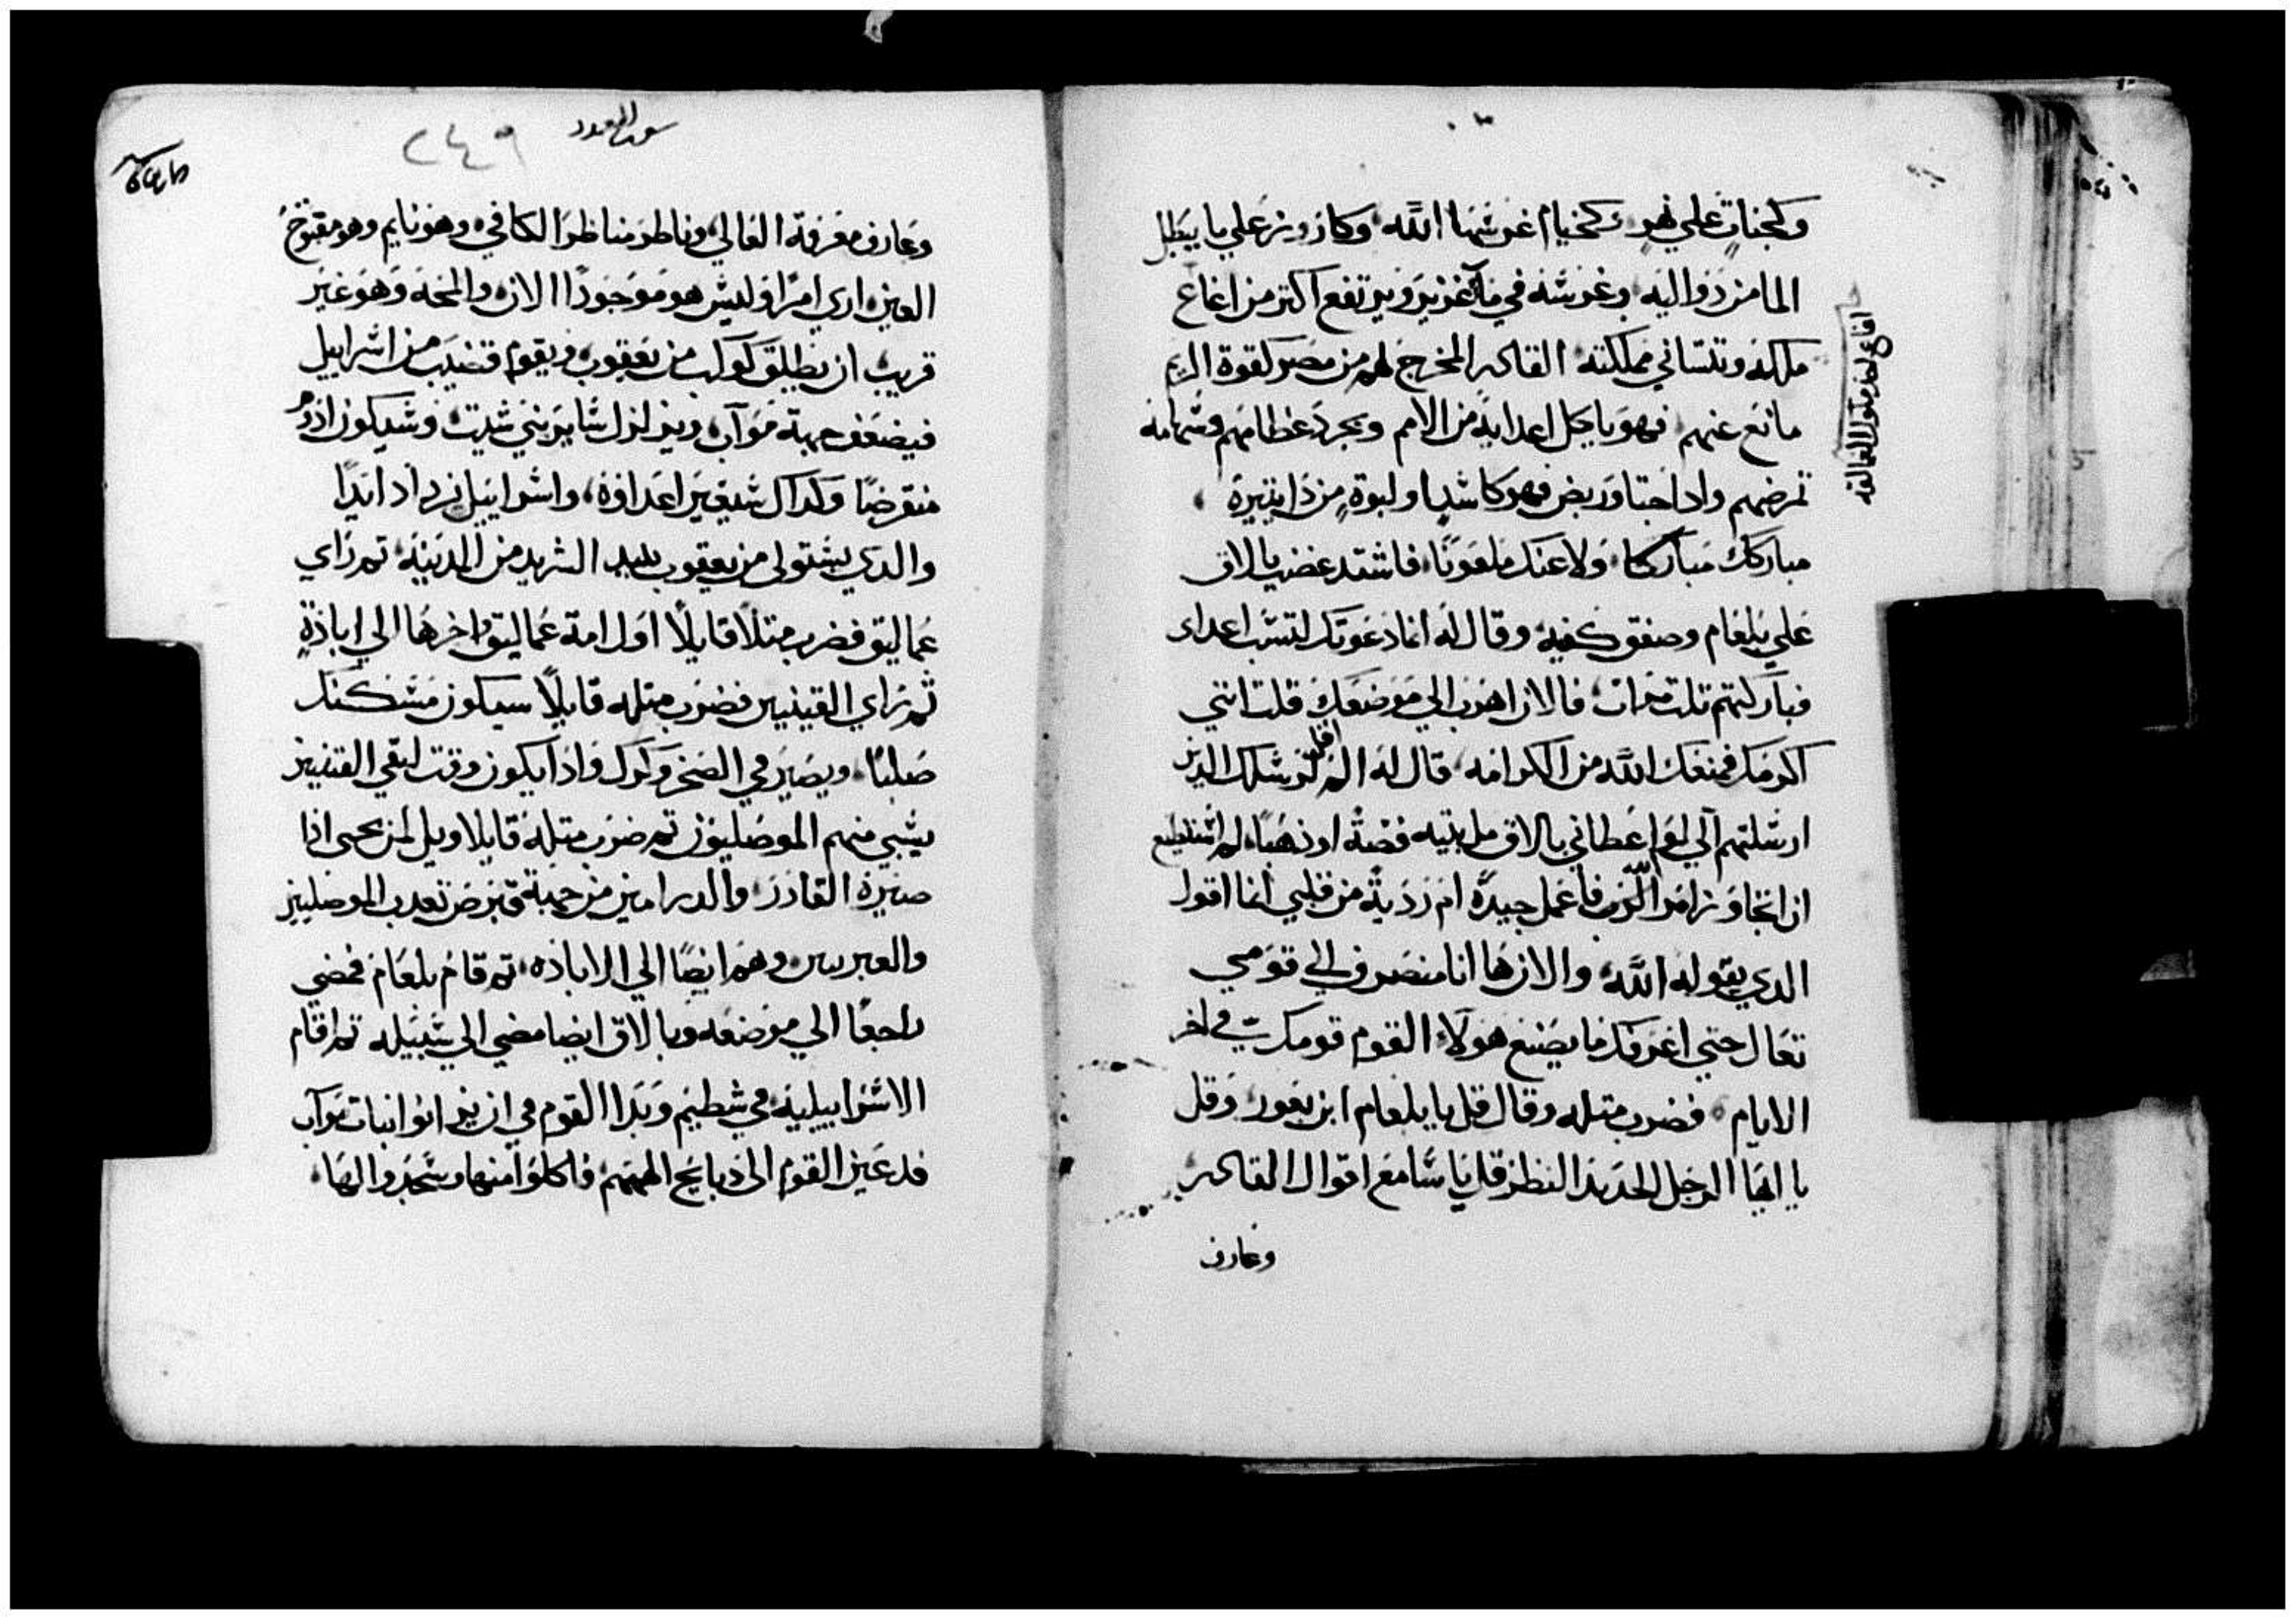 وكجنات علي نهر كخيام غرسها الله وكارز ونزعلي ما يبطل
الما من دواليه وغرسه في ما غزير ويرتفع اكتر من اغاغ
ملكه وتتساني مملكته القادر المخرج لهم من مصر كقوة الريم
مانع عنهم فهو ياكل اعدايه من الامم ويجرد عظامهم وسهامه
تمرضهم وادا جتا وربض فهو كاسد او لبوة من دا يتيره
مباركك مباركا ولاعنك ملعونا فاشتد غضب بالاق
علي بلعام وصفق كفيه وقال له انما دعوتك لتسب اعداي
فباركتهم تلت مرات فالان اهرب الي موضعك قلت انني
اكرمك فمنعك الله من الكرامه قال له الم اقل لرسلك الدين
ارسلتهم الي لو اعطاني بالاق مل بيته فضة او ذهبا لم استطيع
ان اتجاوز امر الرب فاعمل جيدة ام ردية من قلبي انما اقول
الدي يقوله الله والان ها انا منصرف الي قومي
تعال حتي اعرفك ما يصنع هولاء القوم قومك في اخر
الايام فضرب متله وقال قل يا بلعام ابن بعور وقل
يا ايها الرجل الحديد النظر قل يا سامع اقوال القادر
وعارف
اجاج لعند ملوك العمالقه
سفر العدد
٢٤٩
وعارف معرفة العالي وناظر مناظر الكافي وهو نايم وهو مفتوح
العين اري امرا وليس هو موجودا الان والمحه وهو غير
قريب ان يطلق كوكب من يعقوب ويقوم قضيب من اسراييل
فيضعف جهة مواب ويزلزل ساير بني شيت وسيكون ادوم
منقرضا وكداك شيعير اعداوه واسراييل يزداد ايدا
والدي يستولي من يعقوب يبيد الشريد من المدينة تم راي
عماليق فضرب متلا قايلا اول امة عماليق واخرها الي اباذة
تم راي القينيين فضرب متله قايلا سيكون مسكنك
صلبا ويصير في الصخر وكرك وادا يكون وقت لبقي القينيين
يسبي منهم الموصليون تم ضرب متله قايلا ويل لمن يحيي ادا
صيره القادر والدرامين من جهة قبرص تعدب الموصليين
والعبريين وهم ايضا الي الاباذه تم قام بلعام فمضي
راجعا الي موضعه وبالاق ايضا مضي الي سبيله تم اقام
الاسراييليه في شطيم وبدا القوم في ان يزانوا بنات مواب
فدعين القوم الي دبايح الهتهم فاكلوا منها وسجدوا لها